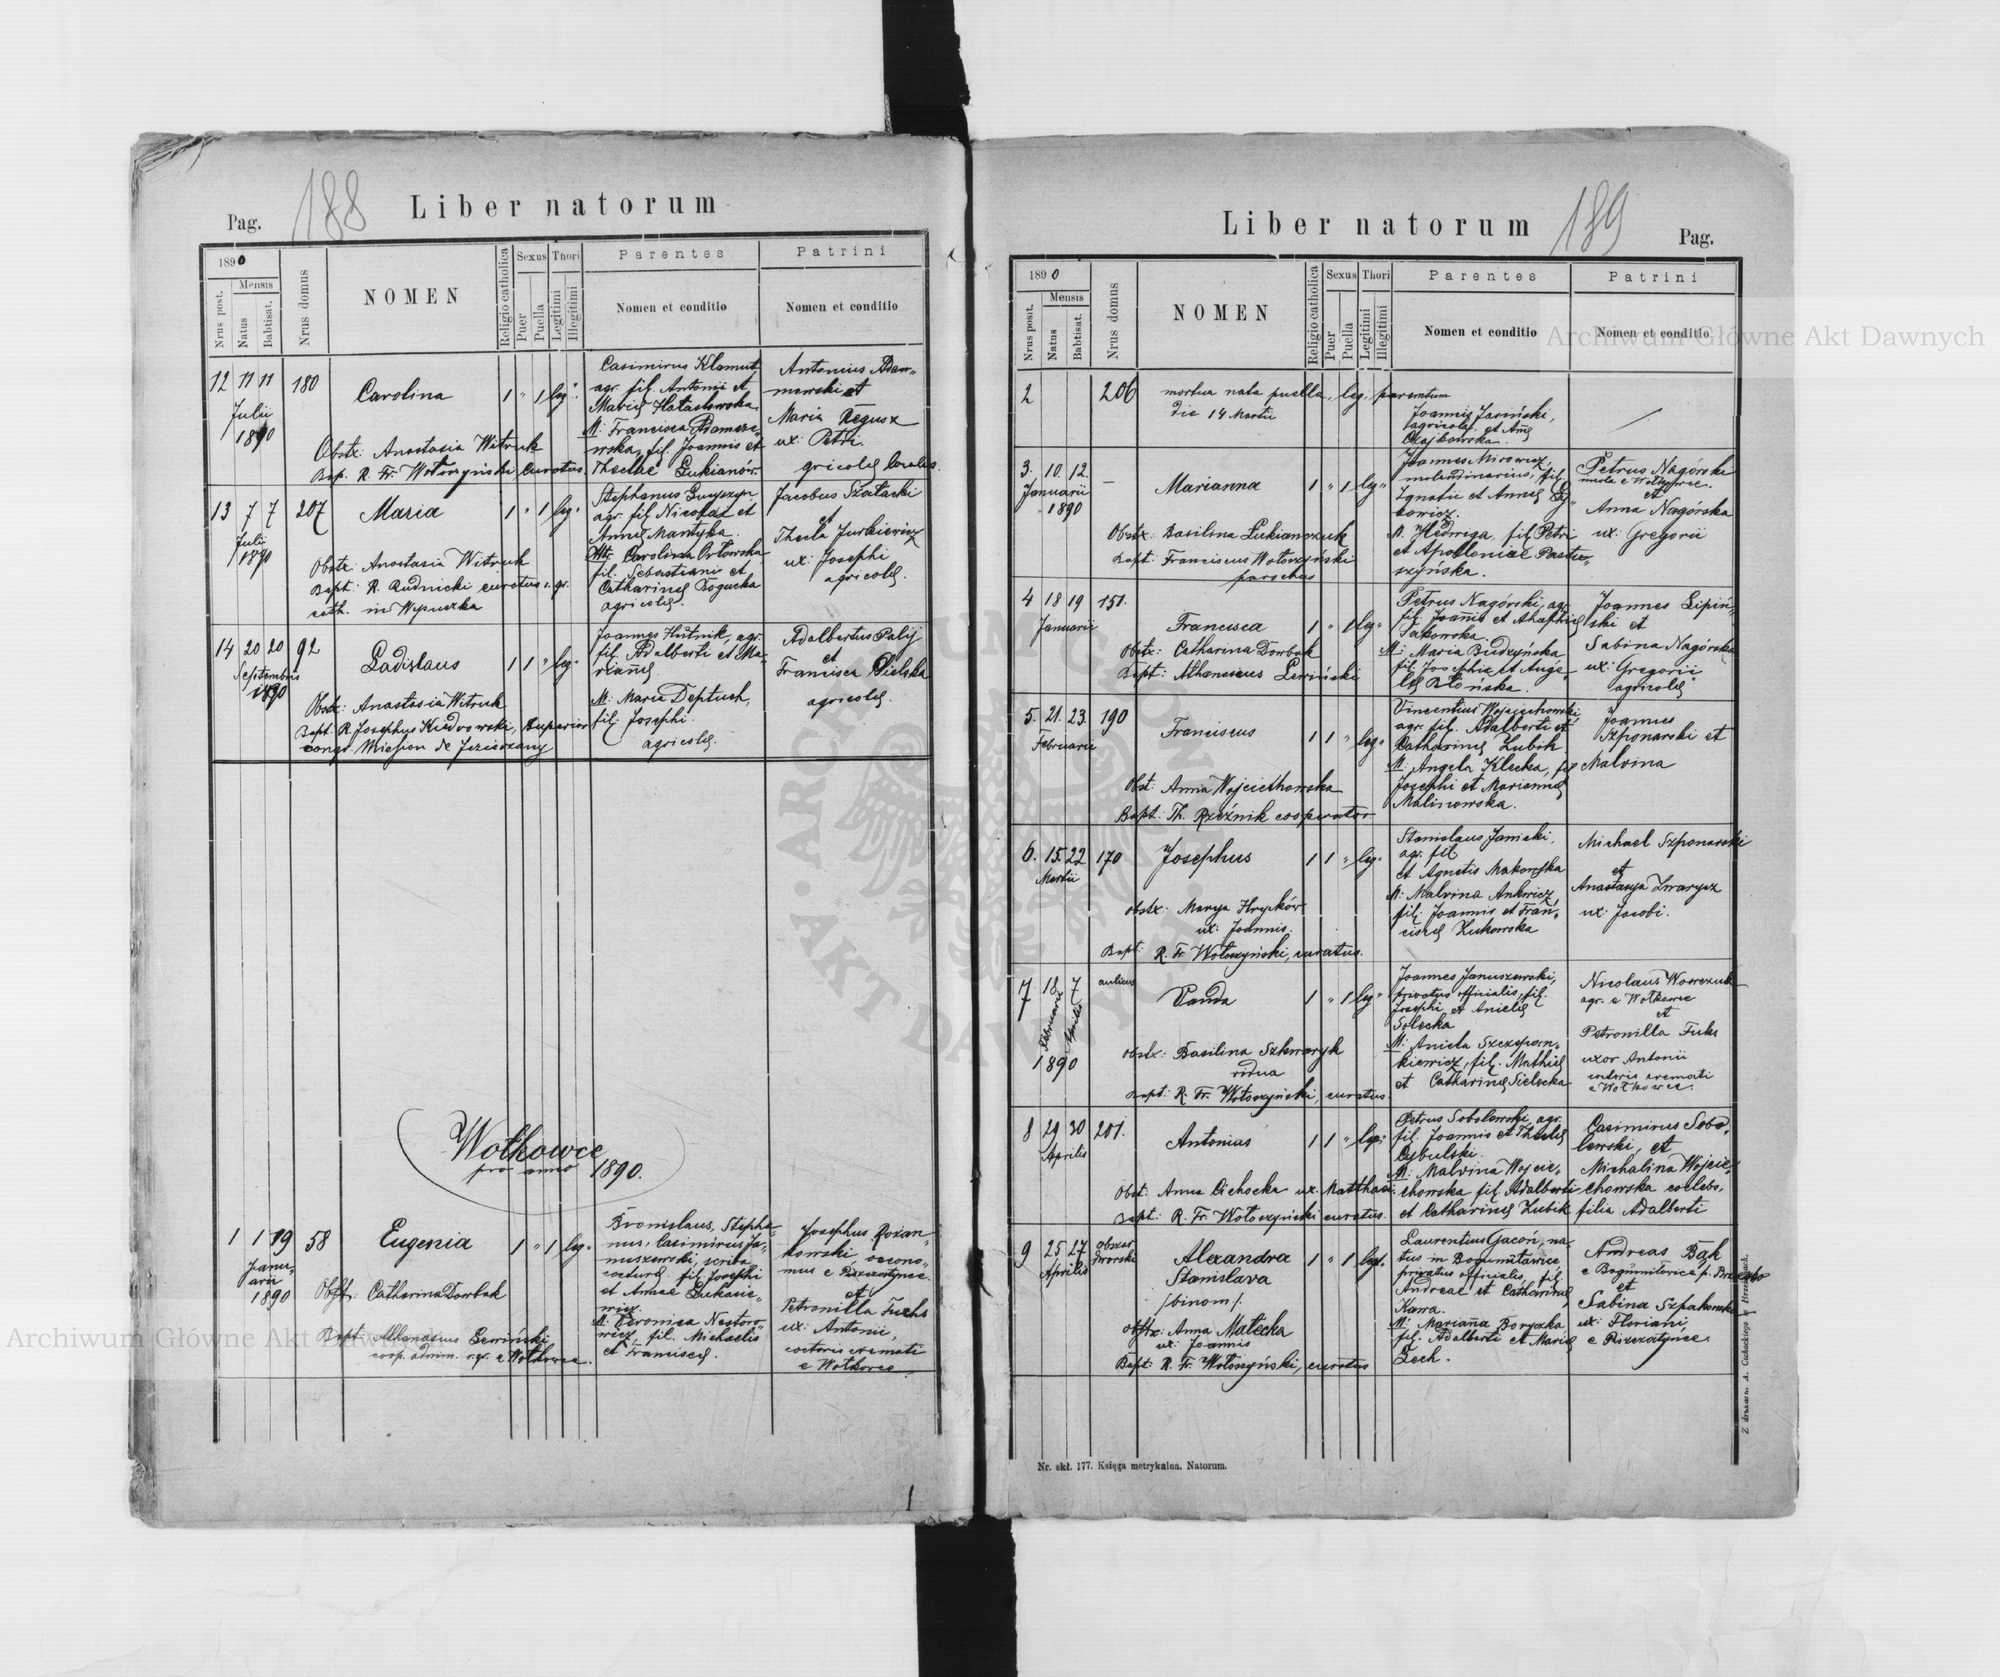 Pag.
188
Liber natorum
1890
Nrus post.
Mensis
Natus
Babtisat.
Nrus domus
NOMEN
Religio catholica
Sexus
Puer
Puella
Thori
Legitimi
Illegitimi
Parentes
Nomen et conditio
Patrini
Nomen et conditio
12 11 11 180
Julii
1890
Carolina
1 " 1 leg. "
Obstx: Anastasia Witruk
Bap. R. Fr. Wołoszyński, Curatus.
Casimirus Klamut
agr. fil. Antonii et
Mariæ
M: Francisca
wska, fil. Joannis et
Theclae Łukianów.
Antonius Adam-
et
Maria
ux: Petri.
gricolæ locales.
13 7 7 207
Julii
1890
Maria
1 " 1 leg. "
Obstx: Anastasia Witruk
Bapt: R. Rudnicki curatus r. gr.
cath. in Wysuczka
Stephanus
agr. fil. Nicolai et
Annæ Mantyka.
Carolina Orłowska,
fil. Sebastiani et
Catharinæ Bogucka
agricolæ.
Jacobus Szałacki
et
Thecla Jurkiewicz
ux: Josephi
agricolæ.
14 20 20 92
Septembris
1890
Ladislaus
1 1 " leg. "
Obstx: Anastasia Witruk
Bapt: R. Josephus, Superior
congr. Mission de Jezierzany
Joannes Hutnik, agr.
fil. Adalberti et Ma-
riannæ
M: Maria Deptuch,
fil. Josephi.
agricolæ.
Adalbertus Palij
et
Francisca Bielska
agricolæ.
Wołkowce
pro anno 1890.
1 1 19 58
Janu-
arii
1890
Eugenia
1 " 1 leg. "
Obstx: Catharina Dowbak
Bapt: Athanasius Lewiński
coop. admin. r. gr. e Wołkowce.
Bronislaus, Stepha-
nus, Casimirus Ja-
nuszewski, scriba
cocturæ, fil. Josephi
et Annae Łukasie-
wicz.
M: Veronica Nestoro-
wicz, fil. Michaelis
et Franciscæ.
Josephus Rozan-
kowski oecono-
mus e Piszczatynce.
et
Petronilla Fuchs
ux: Antonii,
coctoris cremati
e Wołkowce
Liber natorum
189
Pag.
1890
Nrus posit.
Mensis
Natus
Babtisat.
Nrus domus
NOMEN
Religio catholica
Sexus
Puer
Puella
Thori
Legitimi
Illegitimi
Parentes
Nomen et conditio
Patrini
Nomen et conditio
2 206
mortua nata puella, leg. parentum
die 14 Martii
Joannis Jasiński,
agricolæ, et Annæ
Czajkowska.
3. 10. 12. —
Januarii
1890
Marianna
1 " 1 leg. "
Obstx: Basilina Łukianczuk
Bapt: Franciscus Wołoszyński
parochus
Joannes Mirowicz,
molendinarius, fil.
Ignatii et Annæ
kowicz.
M. Hedwiga, fil. Petri
et Apolloniae Pastu-
szyńska.
Petrus Nagórski
e Wołkowce.
et
Anna Nagórska
ux: Gregorii
4 18 19 151.
Januarii
Francisca
1 " 1 leg. "
Obstx: Catharina Dowbak
Bapt: Athanasius Lewiński
Petrus Nagórski, agr.
fil. Joannis et Ahaphiæ
Sakowska.
M: Maria Budzyńska
fil. Josephi et Ange-
læ Błońska.
Joannes Lipiń-
ski et
Sabina Nagórska
ux: Gregorii
agricolæ
5. 21. 23. 190
Februarii
Franciscus
1 1 " leg. "
Obst: Anna Wojciechowska
Bapt: Th. Rzéźnik cooperator
Vincentius Wojciechowski,
agr. fil. Adalberti et
Catharinæ Zubik.
M: Angela Klecka, fil.
Josephi et Mariannæ
Malinowska.
Joannes
Szponarski et
Malvina
6. 15. 22 170
Martii
Josephus
1 1 " leg. "
Obstx: Marya Hryćków
ux: Joannis.
Bapt: R. Fr. Wołoszyński, curatus.
Stanislaus Janicki,
agr. fil
et Agnetis Makowska
M: Malvina Ankwicz,
fil. Joannis et Fran-
ciscæ Zukowska
Michael Szponarski
et
Anastasya Zwarycz
ux: Jacobi.
7 18 7
Februarii Aprilis
1890
aulicus
Vanda
1 " 1 leg. "
Obstx: Basilina Szkwaryk
vidua
Bapt: R. Fr. Wołoszyński, curatus.
Joannes Januszewski,
privatus officialis, fil.
Josephi et Anielæ
Solecka
M: Aniela Szczepan-
kiewicz, fil. Mathiæ
et Catharinæ Sielecka
Nicolaus Wowczuk
agr. e Wołkowce
et
Petronilla Fuks
uxor Antonii
coctoris cremati
e Wołkowce.
8 29 30 201.
Aprilis
Antonius
1 1 " leg. "
Obst: Anna Cichocka ux. Matthaei.
Bapt: R. Fr. Wołoszyński curatus.
Petrus Sobolewski, agr.
fil. Joannis et Theclæ
Cybulski.
M: Malvina Wojcie-
chowska fil. Adalberti
et Catharinæ Zubik
Casimirus Sobo-
lewski, et
Michalina Wojcie-
chowska coelebs,
filia Adalberti
9 25 27
Aprilis
obszar
dworski
Alexandra
Stanislava
/binom/.
1 " 1 leg. "
Obstx: Anna Małecka
ux: Joannis
Bapt: R. Fr. Wołoszyński, curatus
Laurentius Gacoń, na-
tus in Bogumiłowice
privatus officialis, fil.
Andreae et Catharinæ
Kawa.
M: Marianna Boryczka
fil. Adalberti et Mariæ
Zech.
Andreas Bąk
e Bogumiłowice p. Brzesko
et
Sabina Szpakowska
ux: Floriani,
e Piszczatynce
Z drukarni A. Cichockiego w Brzeżanach.
Nr. skł. 177. Księga metrykalna. Natorum.
1
Archiwum Główne Akt Dawnych
Archiwum Główne Akt Dawnych